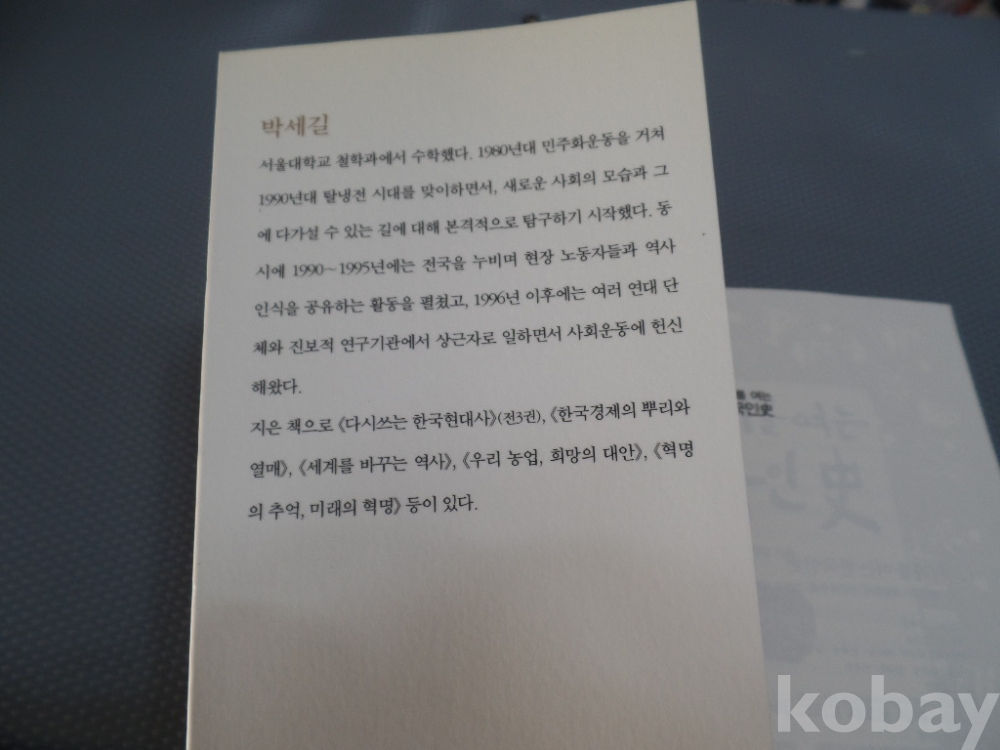 박세길
서울대학교 철학과에서 수학했다. 1980년대 민주화운동을 거쳐
1990년대 탈냉전 시대를 맞이하면서, 새로운 사회의 모습과 그
에 다가설 수 있는 길에 대해 본격적으로 탐구하기 시작했다. 동
시에 1990~1995년에는 전국을 누비며 현장 노동자들과 역사
인식을 공유하는 활동을 펼쳤고, 1996년 이후에는 여러 연대 단
체와 진보적 연구기관에서 상근자로 일하면서 사회운동에 헌신
해왔다.
지은 책으로 《다시쓰는 한국현대사》(전3권), 《한국경제의 뿌리와
열매》, 《세계를 바꾸는 역사》, 《우리 농업, 희망의 대안》, 《혁명
의 추억, 미래의 혁명》 등이 있다.
를 여는
kobay